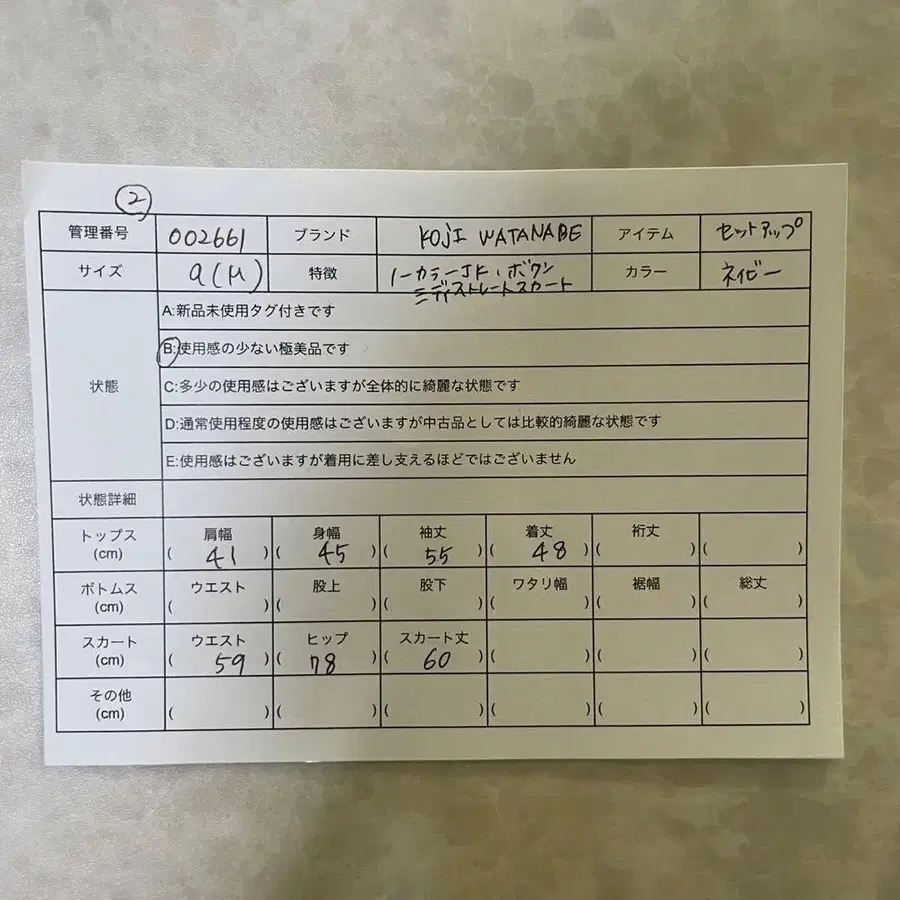 ②
管理番号 002661 ブランド KOJI WATANABE アイテム セットアップ
サイズ 9(M) 特徴 ノーカラーJK、ボタン カラー ネイビー
ミディストレートスカート
状態
A:新品未使用タグ付きです
B:使用感の少ない極美品です
C:多少の使用感はございますが全体的に綺麗な状態です
D:通常使用程度の使用感はございますが中古品としては比較的綺麗な状態です
E:使用感はございますが着用に差し支えるほどではございません
状態詳細
トップス 肩幅 身幅 袖丈 着丈 裄丈
(cm) ( 41 ) ( 45 ) ( 55 ) ( 48 ) ( ) ( )
ボトムス ウエスト 股上 股下 ワタリ幅 裾幅 総丈
(cm) ( ) ( ) ( ) ( ) ( ) ( )
スカート ウエスト ヒップ スカート丈
(cm) ( 59 ) ( 78 ) ( 60 ) ( ) ( ) ( )
その他
(cm) ( ) ( ) ( ) ( ) ( ) ( )